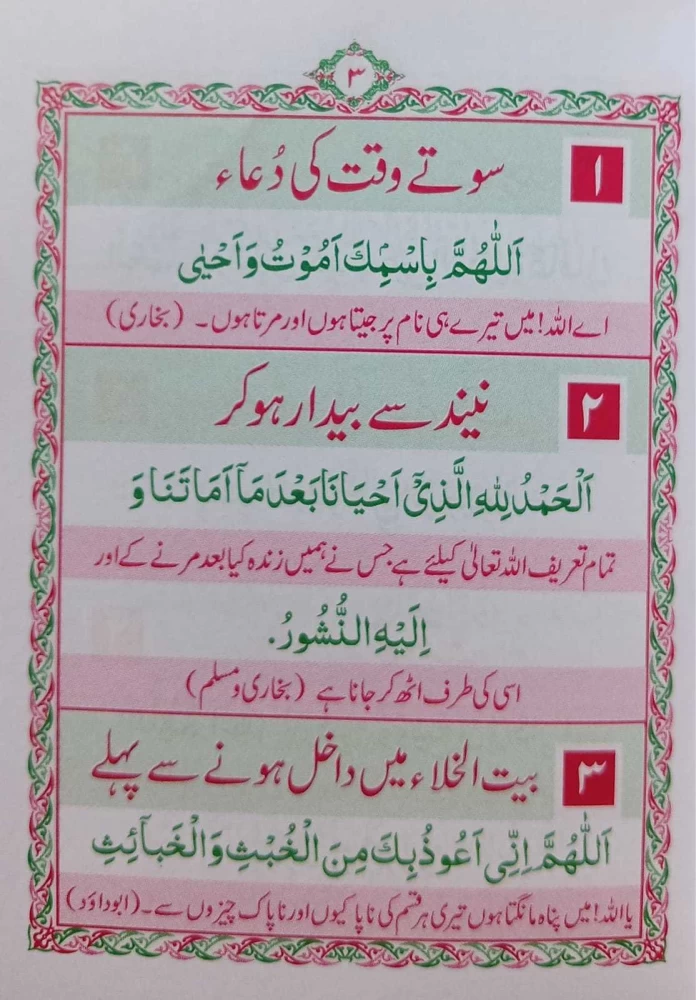 ۳
۱
سوتے وقت کی دُعاء
اَللّٰهُمَّ بِاسْمِكَ اَمُوْتُ وَاَحْيٰى
اے اللہ! میں تیرے ہی نام پر جیتا ہوں اور مرتا ہوں۔ (بخاری)
۲
نیند سے بیدار ہو کر
اَلْحَمْدُ لِلّٰهِ الَّذِىْٓ اَحْيَانَا بَعْدَ مَآ اَمَاتَنَا وَ
تمام تعریف اللہ تعالیٰ کیلئے ہے جس نے ہمیں زندہ کیا بعد مرنے کے اور
اِلَيْهِ النُّشُورُ.
اسی کی طرف اٹھ کر جانا ہے (بخاری و مسلم)
۳
بیت الخلاء میں داخل ہونے سے پہلے
اَللّٰهُمَّ اِنِّى اَعُوْذُ بِكَ مِنَ الْخُبْثِ وَالْخَبَآئِثِ
یا اللہ! میں پناہ مانگتا ہوں تیری ہر قسم کی ناپاکیوں اور ناپاک چیزوں سے۔ (ابوداؤد)